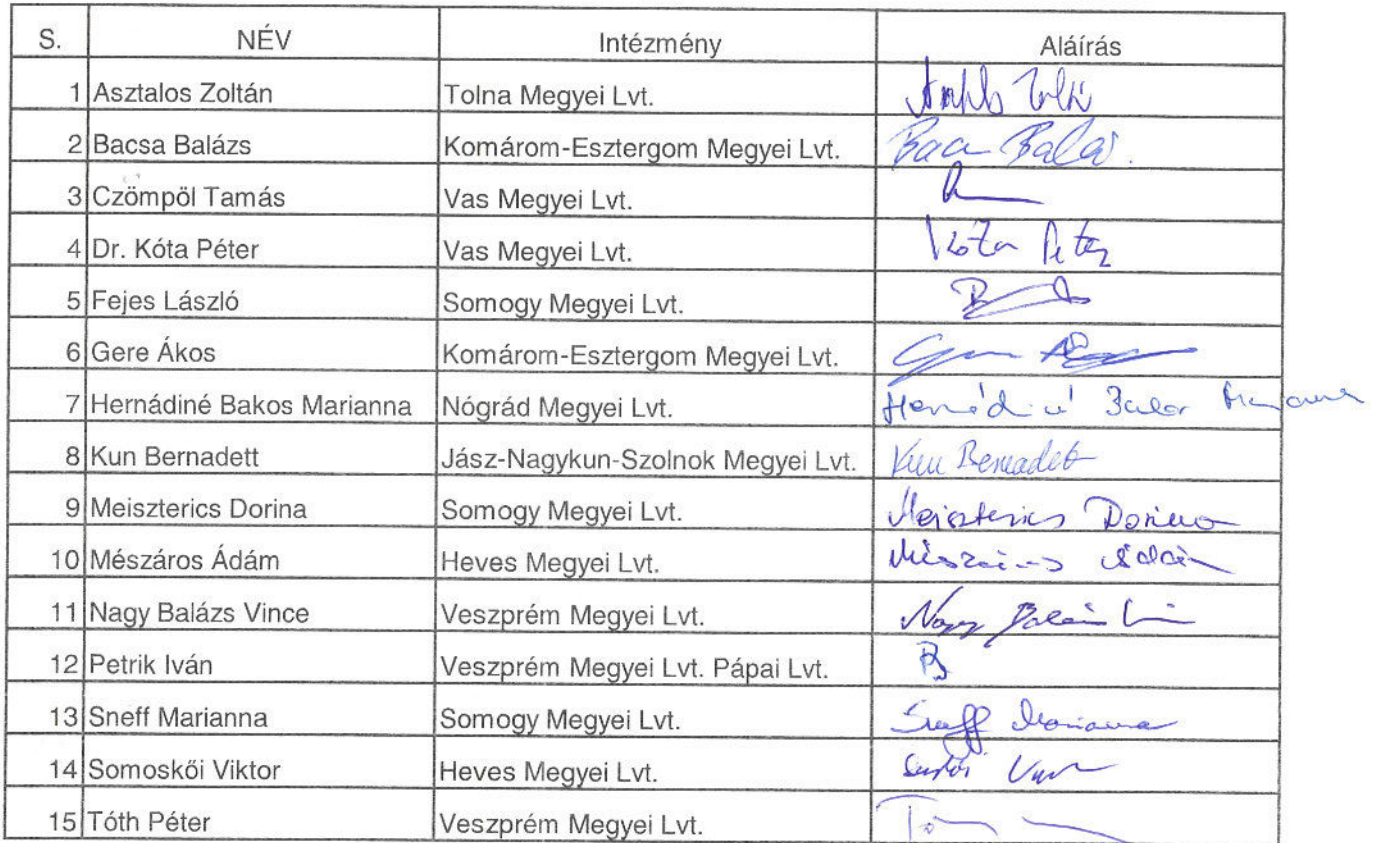 S. NÉV Intézmény Aláírás
1 Asztalos Zoltán Tolna Megyei Lvt.
2 Bacsa Balázs Komárom-Esztergom Megyei Lvt. Bacsa Balázs
3 Czömpöl Tamás Vas Megyei Lvt.
4 Dr. Kóta Péter Vas Megyei Lvt. Kóta Péter
5 Fejes László Somogy Megyei Lvt.
6 Gere Ákos Komárom-Esztergom Megyei Lvt.
7 Hernádiné Bakos Marianna Nógrád Megyei Lvt. Hernádiné Bakos Marianna
8 Kun Bernadett Jász-Nagykun-Szolnok Megyei Lvt. Kun Bernadett
9 Meiszterics Dorina Somogy Megyei Lvt. Meiszterics Dorina
10 Mészáros Ádám Heves Megyei Lvt. Mészáros Ádám
11 Nagy Balázs Vince Veszprém Megyei Lvt. Nagy Balázs
12 Petrik Iván Veszprém Megyei Lvt. Pápai Lvt.
13 Sneff Marianna Somogy Megyei Lvt. Sneff Marianna
14 Somoskői Viktor Heves Megyei Lvt.
15 Tóth Péter Veszprém Megyei Lvt.